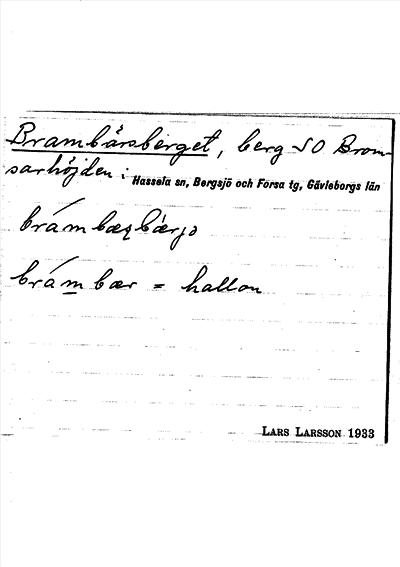 Brambärsberget, berg SO Brom-
sarhöjden i Hassela sn, Bergsjö och Forsa tg, Gävleborgs län
brámbæʀbærjo
brám bær = hallon
LARS LARSSON 1933